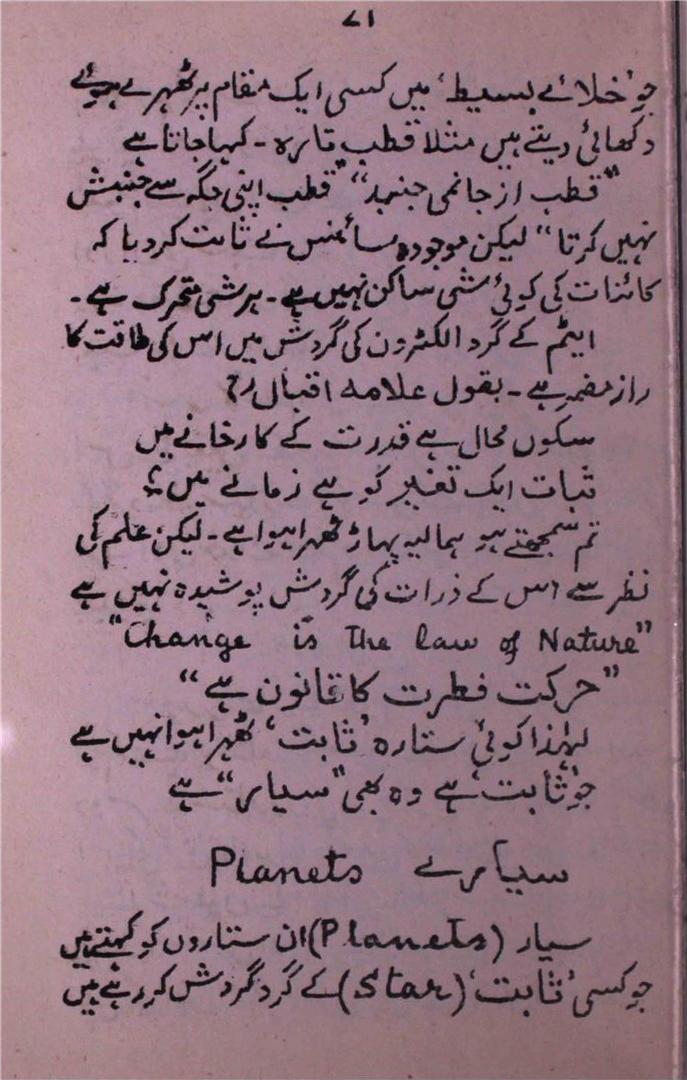 ۷۱
جو ’خلائے بسیط‘ میں کسی ایک مقام پر ٹھہرے ہوئے
دکھائی دیتے ہیں مثلا قطب تارہ ۔ کہا جاتا ہے
”قطب از جا نمی جنبد“ ”قطب اپنی جگہ سے جنبش
نہیں کرتا“ لیکن موجودہ سائنس نے ثابت کر دیا کہ
کائنات کی کوئی شی ساکن نہیں ہے ۔ ہر شی متحرک ہے ۔
ایٹم کے گرد الکٹرون کی گردش میں اس کی طاقت کا
راز مضمر ہے ۔ بقول علامہ اقبال رح
سکوں محال ہے قدرت کے کارخانے میں
ثبات ایک تغیر کو ہے زمانے میں
تم سمجھتے ہو ہمالیہ پہاڑ ٹھہرا ہوا ہے ۔ لیکن علم کی
نظر سے اس کے ذرات کی گردش پوشیدہ نہیں ہے
"Change is the law of Nature"
”حرکت فطرت کا قانون ہے“
لہٰذا کوئی ستارہ ’ثابت‘ ٹھہرا ہوا نہیں ہے
جو ’ثابت‘ ہے وہ بھی ”سیار“ ہے
سیارے Planets
سیار (Planets) ان ستاروں کو کہتے ہیں
جو کسی ’ثابت‘ (Star) کے گرد گردش کر رہے ہیں